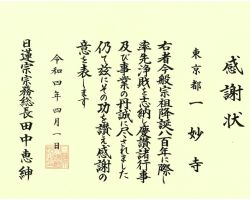 感謝状
東京都 一妙寺
右者今般宗祖降誕八百年に際し
率先浄財を志納し慶讃諸行事
及び事業の丹誠に尽されました
仍て茲にその功を讃え感謝の
意を表します
令和四年四月一日
日蓮宗宗務総長 田中恵紳